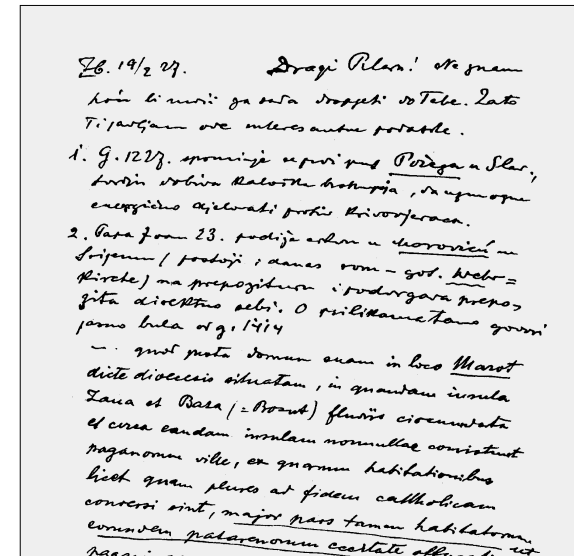 Zb. 19/2 27. Dragi Pilaru! Ne znam
hoću li moći za sada dospjeti do Tebe. Zato
Ti javljam ove interesantne podatke.
1. G. 1227. spominje se prvi put Požega u Slav.,
dobiva Kaločka biskupija, da uzmogne
energično djelovati protiv krivovjeraca.
2. Papa Ivan 23. podiže crkvu u Moroviću u
Srijemu (postoji i danas rom-got. Wehr=
kirche) na prepozituru i podvrgava prepo-
zita direktno sebi. O prilikama tamo govori
jasno bula od g. 1414
—. quod juxta domum suam in loco Marot
dicte diocesis situatam, in quandam insula
Zaua et Baza (=Bosut) fluviis circumdata
et circa eandem insulam nonnullae consistunt
paganorum ville, ex quarum habitationibus
licet quam plures ad fidem catholicam
conversi sint, major pars tamen habitatorum
eorundem patarenorum
pagani